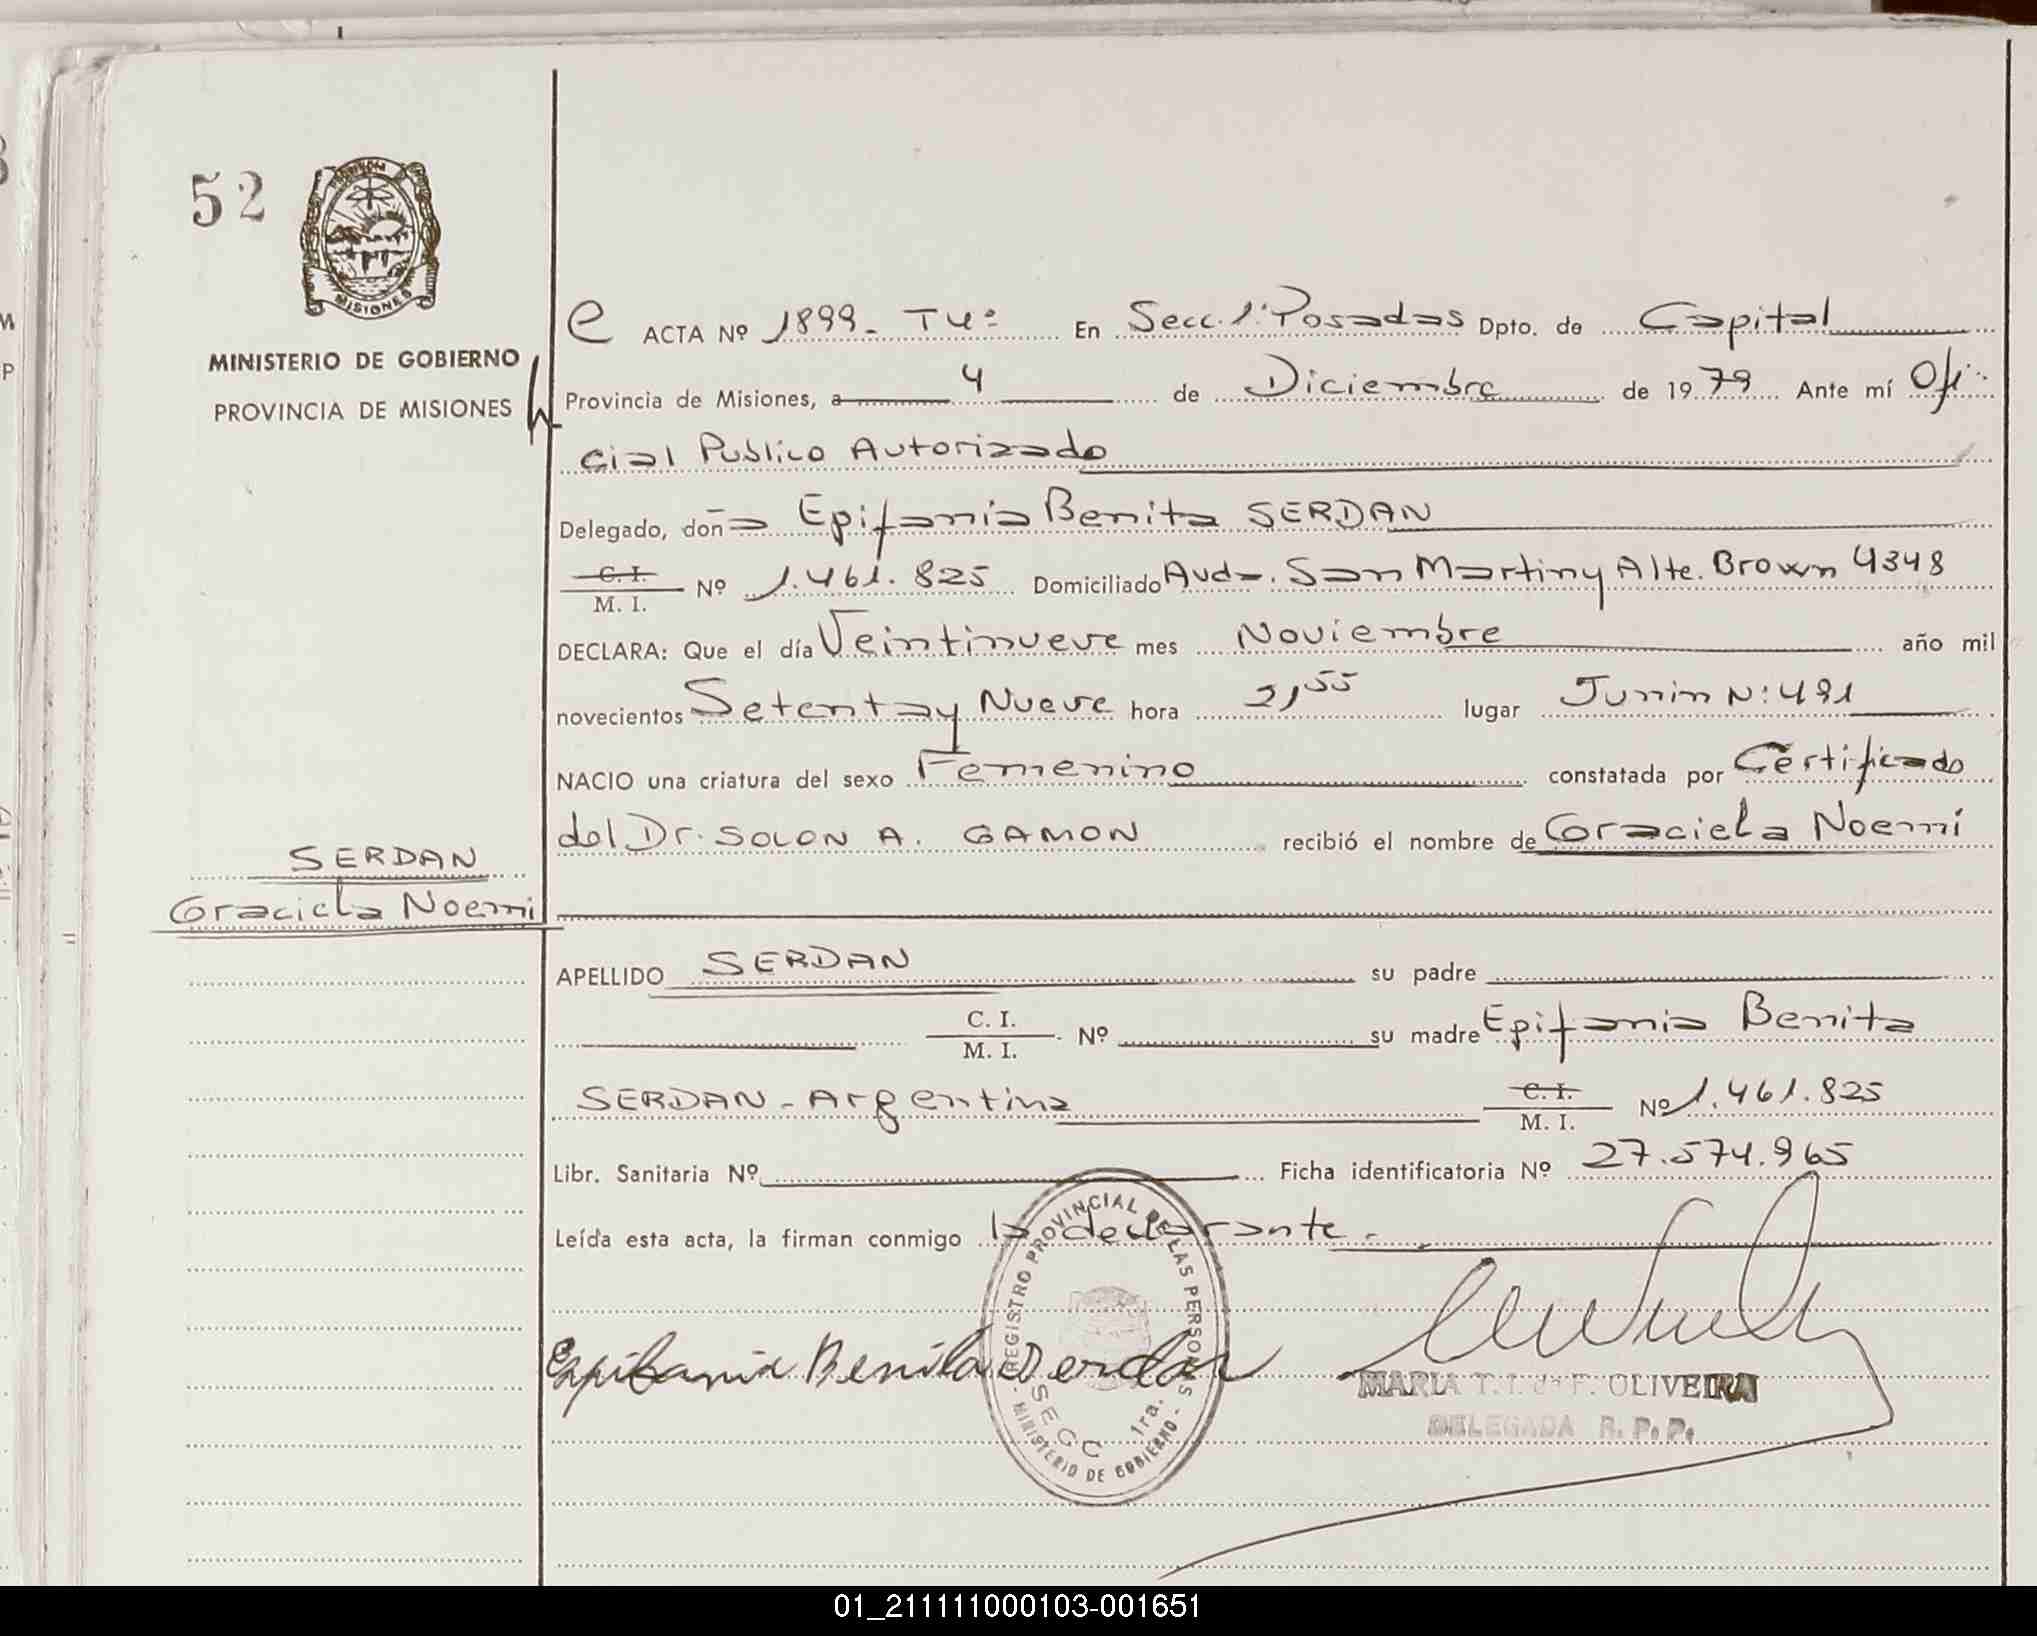 52
MISIONES
MINISTERIO DE GOBIERNO
PROVINCIA DE MISIONES
ACTA Nº 1899_ Tº 4º En Secc. 1ª Posadas Dpto. de Capital
Provincia de Misiones, a 4 de Diciembre de 1979 Ante mí Ofi-
cial Publico Autorizado
Delegado, doña Epifania Benita SERDAN
C. I.
M. I. Nº 1.461.825 Domiciliado Avda. San Martin y Alte. Brown 4348
DECLARA: Que el día Veintinueve mes Noviembre año mil
novecientos Setenta y Nueve hora 21,55 lugar Junin Nº 491
NACIO una criatura del sexo Femenino constatada por Certificado
del Dr. SOLON A. GAMON recibió el nombre de Graciela Noemí
SERDAN
Graciela Noemi
APELLIDO SERDAN su padre
C. I.
M. I. Nº su madre Epifania Benita
SERDAN - Argentina C. I.
M. I. Nº 1.461.825
Libr. Sanitaria Nº Ficha identificatoria Nº 27.574.965
Leída esta acta, la firman conmigo la declarante.
Epifania Benita Serdan
REGISTRO PROVINCIAL DE LAS PERSONAS
SECC 1ra.
- MINISTERIO DE GOBIERNO -
MARIA T. I. de F. OLIVEIRA
DELEGADA R. P. P.
01_211111000103-001651